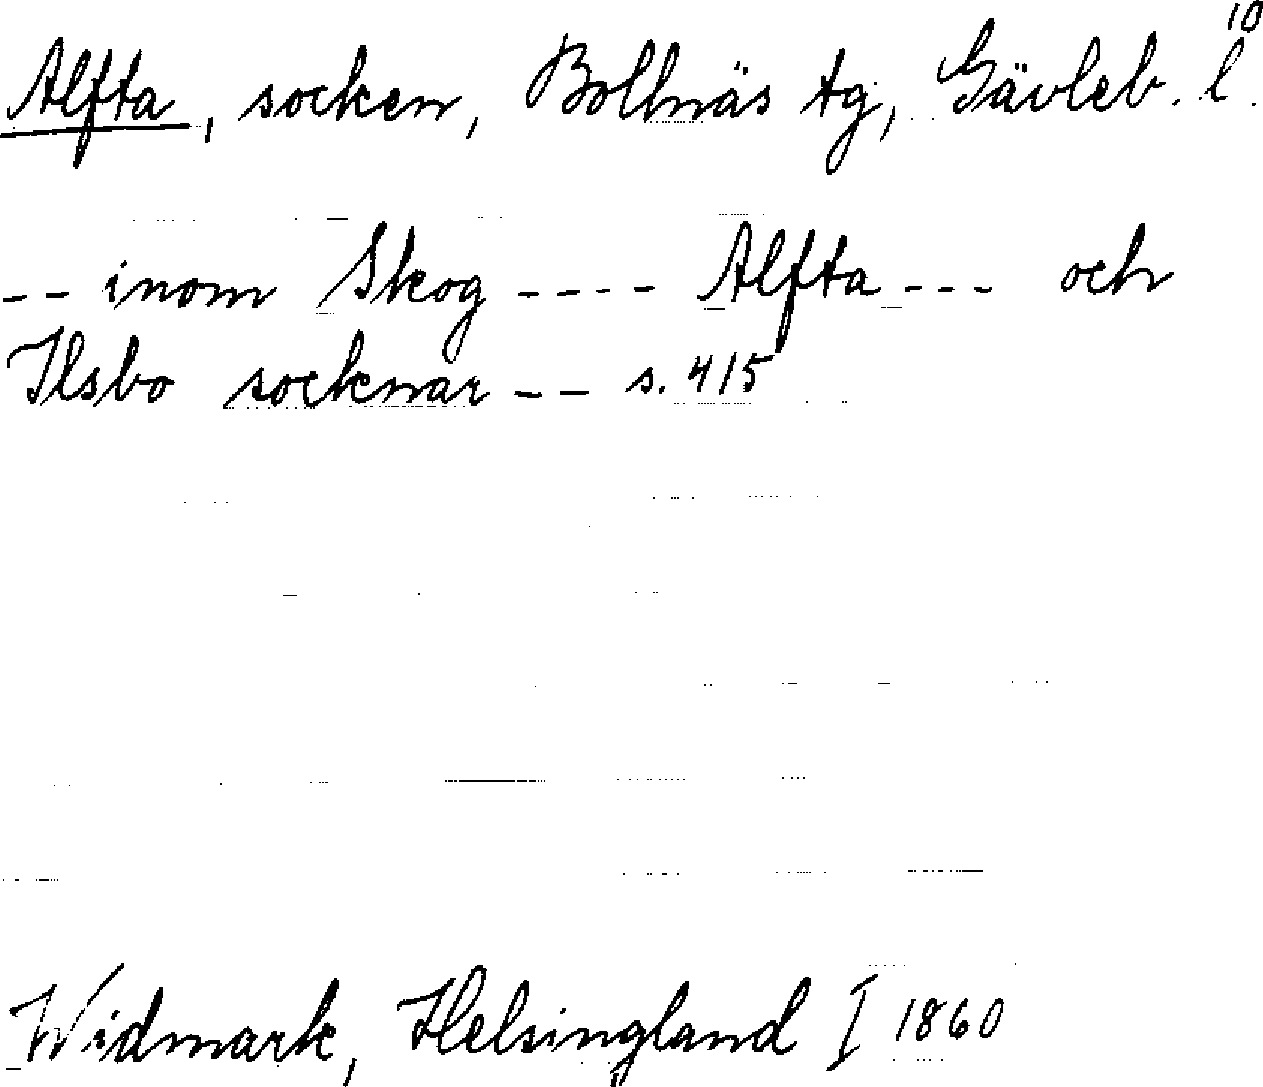 10
Alfta, socken, Bollnäs tg, Gävleb. l.
-- inom Skog ---- Alfta --- och
Ilsbo socknar -- s. 415
Widmark, Helsingland I 1860